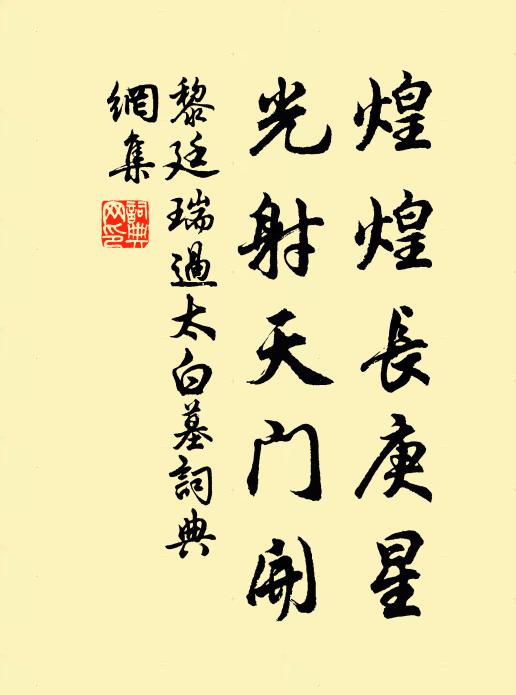 煌煌長庚星
光射天門開
黎廷瑞過太白墓詞典
網集
詞典網印